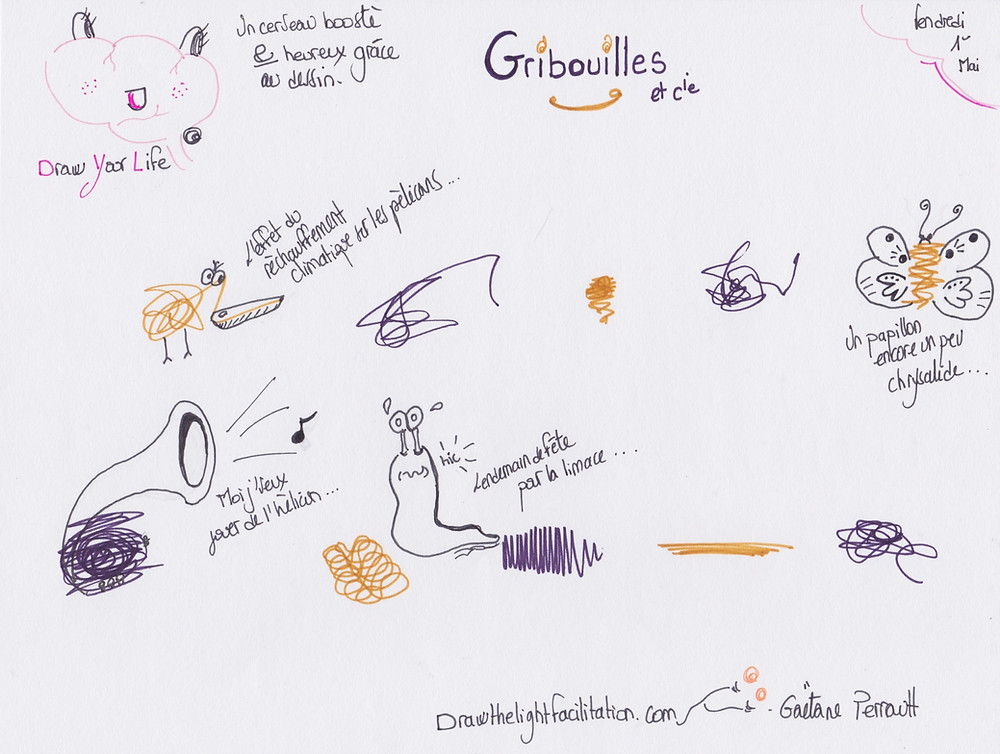 Un cerveau boosté
& heureux grâce
au dessin.
Draw Your Life
Gribouilles
et cie
Vendredi
1er
Mai
L'effet du
réchauffement
climatique sur les pélicans...
Un papillon
encore un peu
chrysalide...
Moi j'veux
jouer de l'hélicon...
hic
Lendemain de fête
par la limace...
Drawthelightfacilitation.com - Gaëtane Perrault